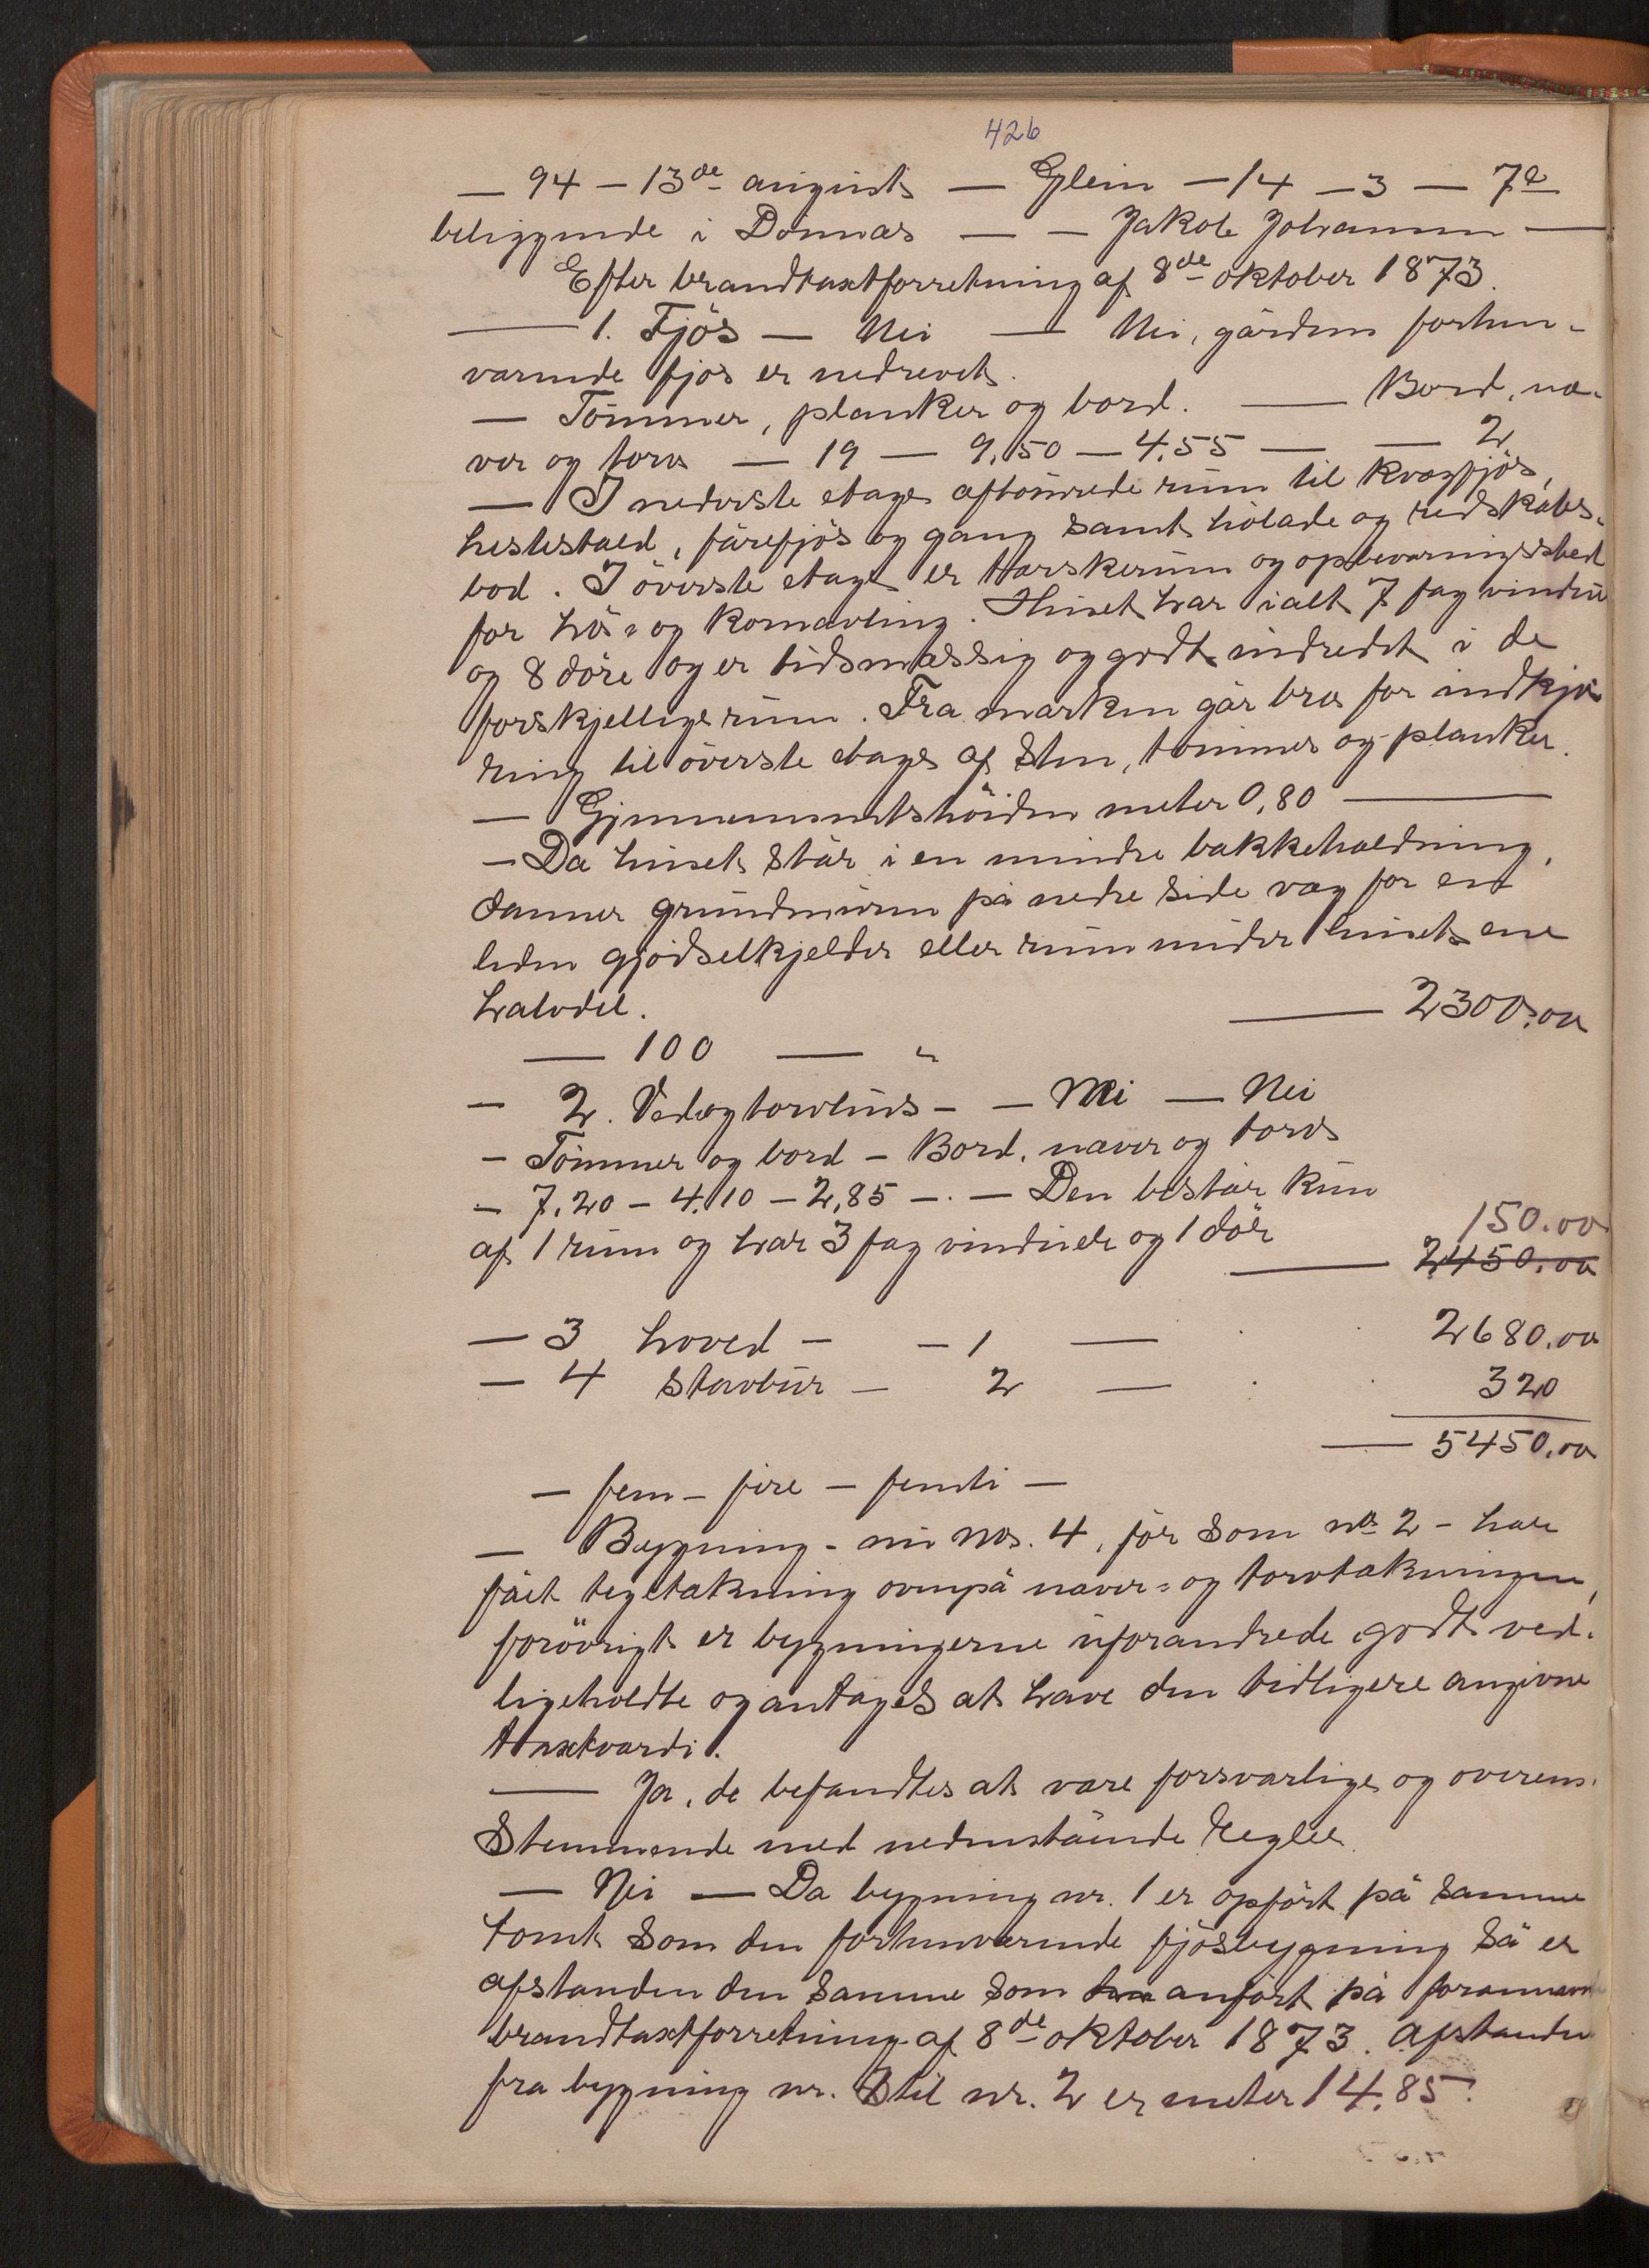 426
— 94 — 13de august — Glein — 14 — 3 — 7e
beliggende i Dönnæs — — Jakob Johansen —
Efter brandtaxtforretning af 8de oktober 1873.
— 1. Fjös — Nei — Nei, gårdens forhen-
værende fjös er nedrevet.
— Tömmer, planker og bord. — Bord, næ-
ver og torv — 19 — 9,50 — 4,55 — — 2
— I nederste etage aftömrede rum til kvægfjös,
hestestald, fårefjös og gang samt hölade og redskabs-
bod. I överste etage er tærskerum og opbevaringssted
for hö- og kornavling. Huset har ialt 7 fag vindu
og 8 döre og er tidsmæssig og godt indredet i de
forskjellige rum. Fra marken går bro for indkjö-
ring til överste etage af sten, tömmer og planker.
— Gjennemsnitshöiden meter 0,80 —
— Da huset står i en mindre bakkehældning,
danner grundmuren på nedre side væg for en
liden gjödselkjelder eller rum under husets ene
halvdel. — 2300.00
— 100 — "
— 2. Ved og torvhus — — Nei — Nei
— Tömmer og bord — Bord, næver og torv
— 7,20 — 4,10 — 2,85 — . — Den består kun
af 1 rum og har 3 fag vinduer og 1 dör 150.00
— 2450.00
— 3 hoved — — 1 — 2680.00
— 4 stavbur — 2 — 320
— 5450.00
— fem — fire — femti —
— Bygning - nu No. 4, för som No 2 - har
fået tegltækning ovenpå næver- og torvtækningen,
forövrigt er bygningerne uforandrede godt ved-
ligeholdte og antages at have den tidligere angivne
taxtværdi.
— Ja, de befandtes at være forsvarlige og overens-
stemmende med nedenstående regler.
— Nei — Da bygning nr. 1 er opfört på samme
tomt som den forhenværende fjösbygning så er
afstanden den samme som anfört på forannævn
brandtaxtforretning af 8de oktober 1873. Afstanden
fra bygning nr. 3 til nr. 2 er meter 14,85.